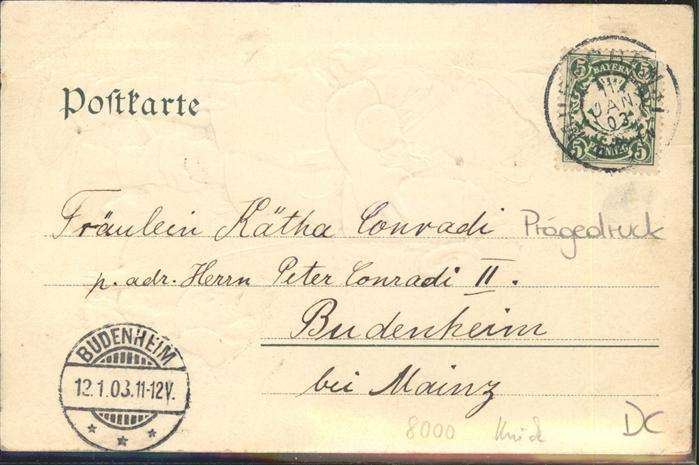 Postkarte
5 BAYERN 5
JAN
03
5 PFENNIG 5
Fräulein Kätha Conradi
Prägedruck
p. adr. Herrn Peter Conradi II.
Budenheim
bei Mainz
BUDENHEIM
12.1.03.11-12V.
8000 Knick
DC